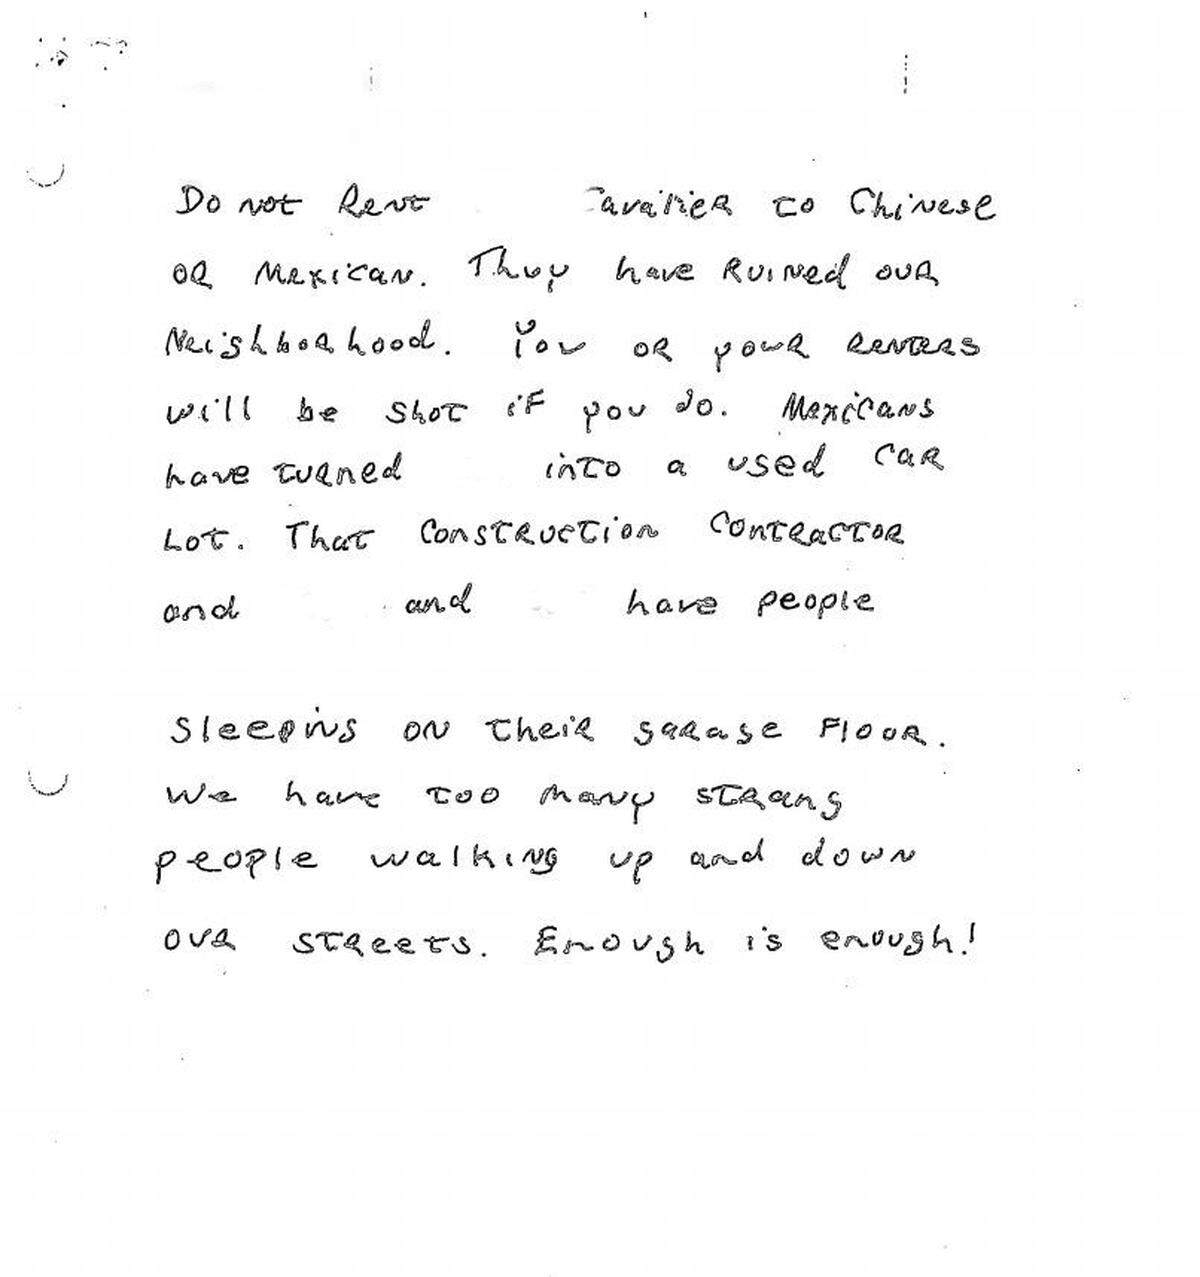 Do not Rent Cavalier to Chinese
or Mexican. They have Ruined our
Neighborhood. You or your renters
will be shot if you do. Mexicans
have turned into a used car
Lot. That Construction Contractor
and and have people
Sleeping on their garage Floor.
We have too many strang
people walking up and down
our streets. Enough is enough!